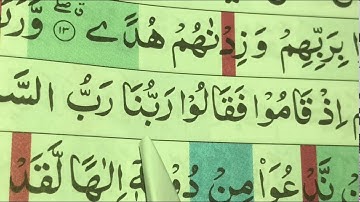 بِرَبِّهِمْ وَزِدْنٰهُمْ هُدًى ۝١٣ وَّرَ
اِذْ قَامُوْا فَقَالُوْا رَبُّنَا رَبُّ السَّ
نَّدْعُوَا۟ مِنْ دُوْنِهٖٓ اِلٰهًا لَّقَدْ